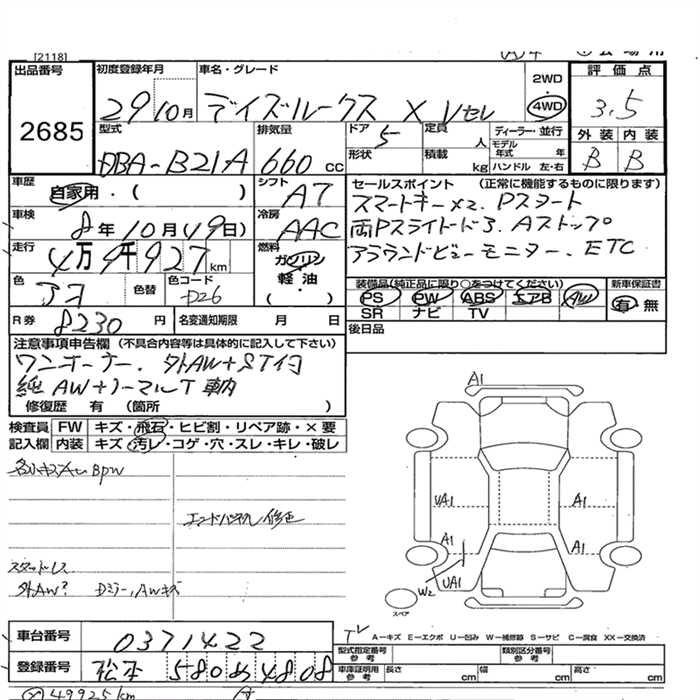 [2118]
出品番号
2685
初度登録年月
29年10月
車名・グレード
デイズルークス X Vセレ
2WD
4WD
評価点
3.5
型式
DBA-B21A
排気量
660 cc
ドア
5
形状
定員
人
積載
kg
ディーラー・並行
モデル年式 年
ハンドル 左・右
外装 内装
B B
車歴
自家用・( )
シフト
A7
車検
8年10月49日)
冷房
AAC
走行
4万9千927km
燃料
ガソリン
軽油
( )
色
アヲ
色替
色コード
D26
セールスポイント (正常に機能するものに限ります)
スマートキー×2. Pスタート
両Pスライドドア. Aストップ
アラウンドビューモニター. ETC
装備品(純正品に限り○をつけてください)
PS PW ABS エアB AW
SR ナビ TV
新車保証書
有 無
R券
8230円
名変通知期限 月 日
後日品
注意事項申告欄 (不具合内容等は具体的に記入して下さい)
ワンオーナー. 外AW+ST付
純AW+ノーマルT 車内
修復歴 有 (箇所 )
検査員記入欄
FW キズ・飛石・ヒビ割・リペア跡・×要
内装 キズ・汚レ・コゲ・穴・スレ・キレ・破レ
エンドパネル修正
スタッドレス
外AW? Dミラー,AWキズ
A1
UA1
A1
A1
A1
W2
UA1
スペア
A-キズ E-エクボ U-凹み W-補修跡 S-サビ C-腐食 XX-交換済
車台番号
0371422
登録番号
松本 580 ぬ 4808
型式指定番号 参考
類別区分番号 参考
車庫証明用 参考
長さ cm
幅 cm
高さ cm
49925km